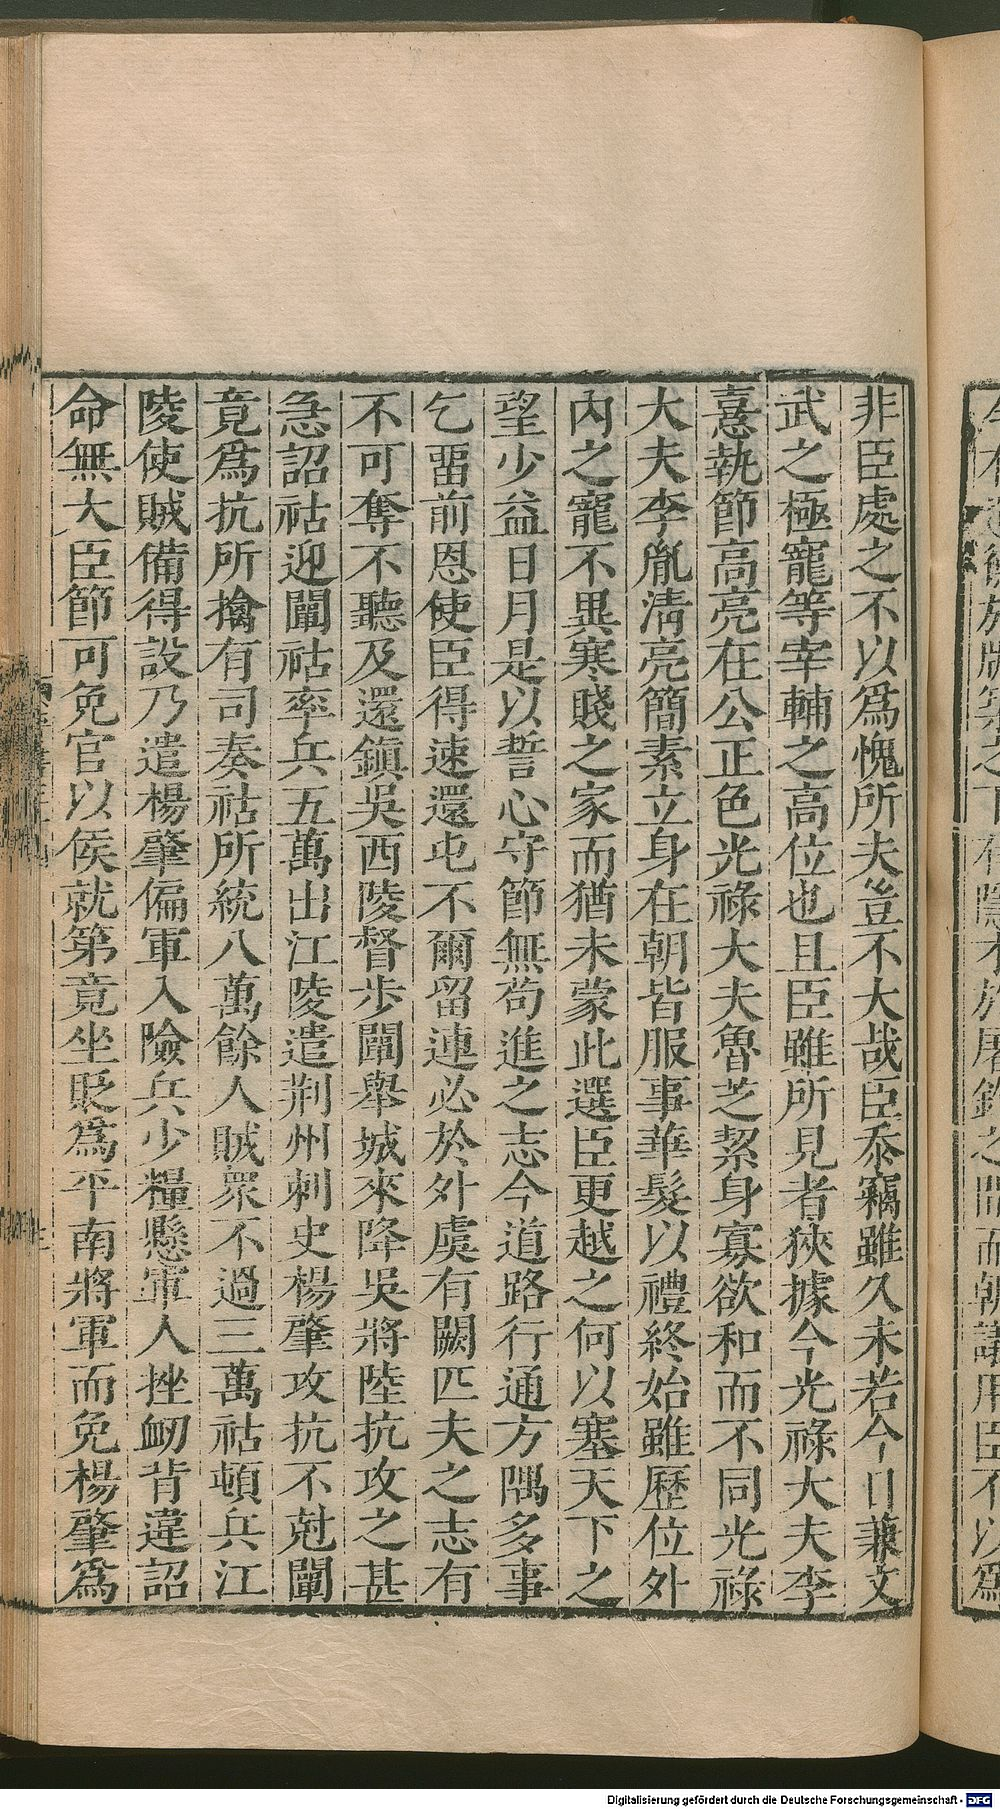 非臣處之不以爲愧所夫豈不大哉臣忝竊雖久未若今日兼文
武之極寵等宰輔之高位也且臣雖所見者狹據今光祿大夫李
憙執節高亮在公正色光祿大夫魯芝絜身寡欲和而不同光祿
大夫李胤淸亮簡素立身在朝皆服事華髮以禮終始雖歷位外
內之寵不異寒賤之家而猶未蒙此選臣更越之何以塞天下之
望少益日月是以誓心守節無苟進之志今道路行通方隅多事
乞畱前恩使臣得速還屯不爾留連必於外虞有闕匹夫之志有
不可奪不聽及還鎭吳西陵督步闡舉城來降吳將陸抗攻之甚
急詔祜迎闡祜率兵五萬出江陵遣荆州刺史楊肇攻抗不尅闡
竟爲抗所擒有司奏祜所統八萬餘人賊衆不過三萬祜頓兵江
陵使賊備得設乃遣楊肇偏軍入險兵少糧懸軍人挫衂背違詔
命無大臣節可免官以侯就第竟坐貶爲平南將軍而免楊肇爲
Digitalisierung gefördert durch die Deutsche Forschungsgemeinschaft - DFG